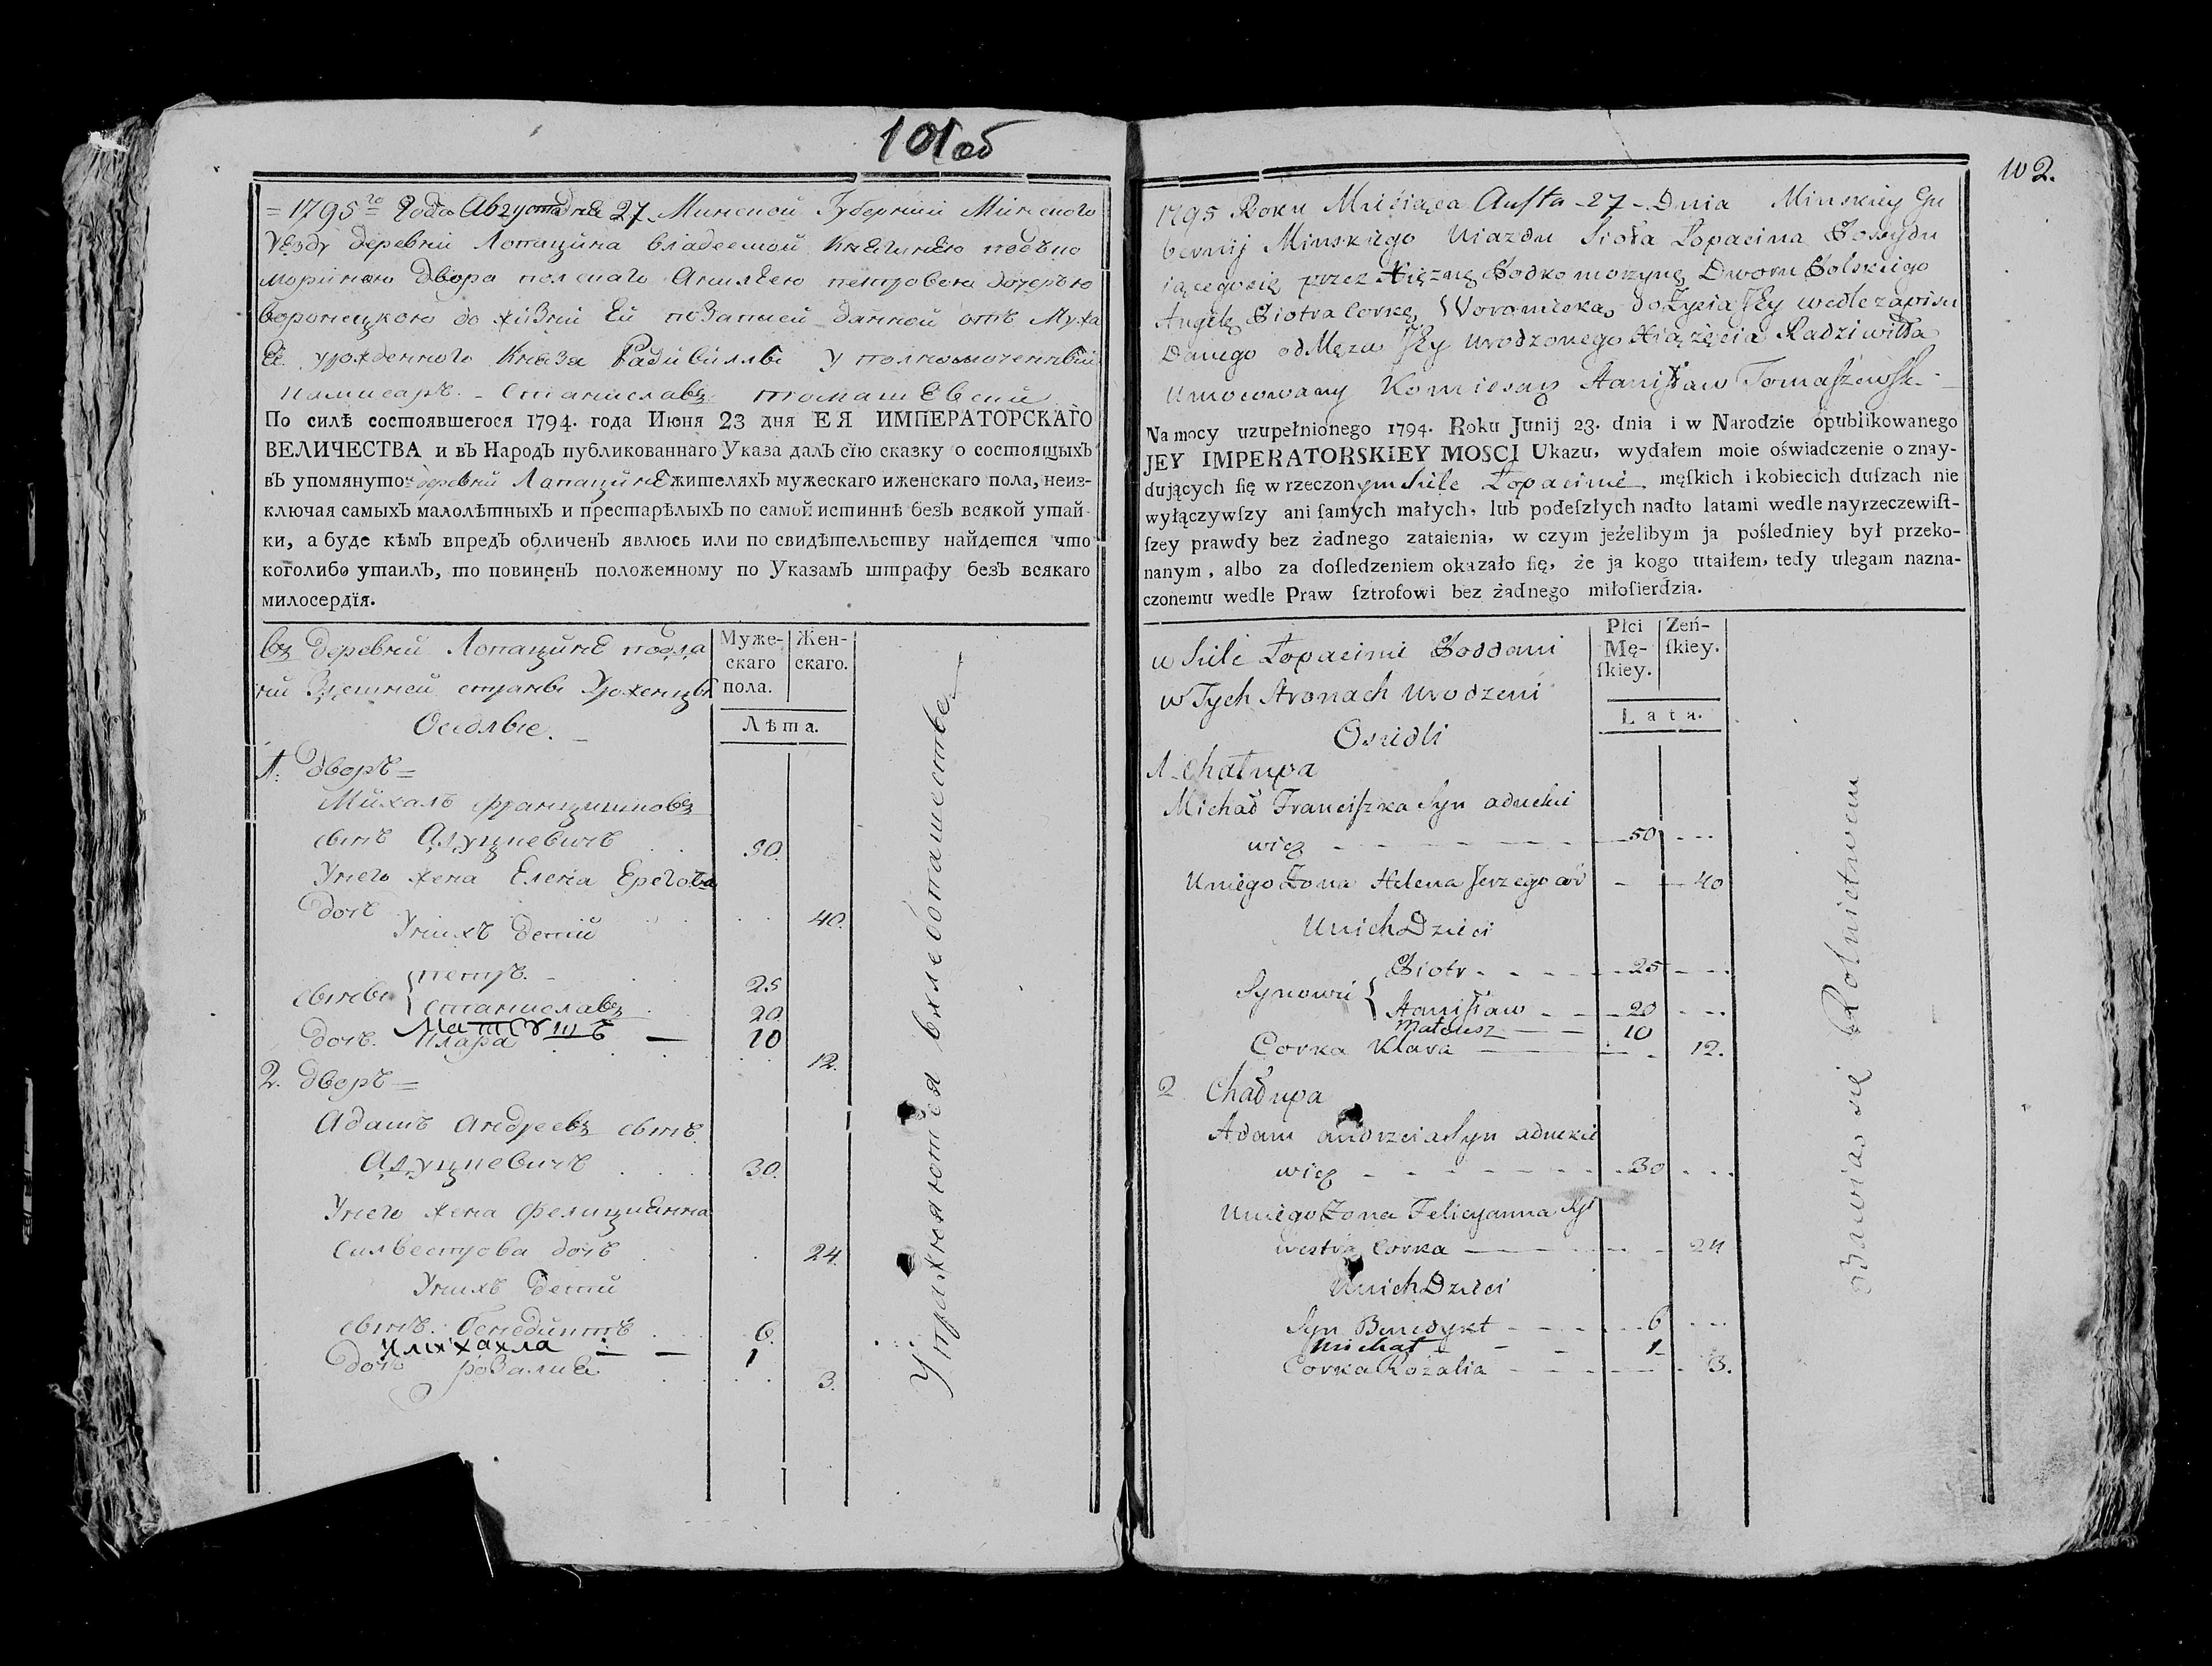 101об
= 1795го Года Августа дня 27 Минской Губерниї Минского
Уѣзду деревни Лопацина владеемой Княгинею подъко
мориною двора полского Анилѣею петровою дочерью
воронецкою до живни Ей по записѣ данной отъ Мужа
Еѣ урожденного Князя Радивилла уполномоченный
Станиславъ томашевский
По силѣ состоявшегося 1794. года Июня 23 дня ЕЯ ИМПЕРАТОРСКАГО
ВЕЛИЧЕСТВА и въ Народъ публикованнаго Указа далъ сїю сказку о состоящыхъ
въ упомянутой деревни Лапацинѣ жителяхъ мужескаго иженскаго пола, неиз-
ключая самыхъ малолѣтныхъ и престарѣлыхъ по самой истиннѣ безъ всякой утай-
ки, а буде кѣмъ впредъ обличенъ явлюсь или по свидѣтельству найдется что
коголибо утаилъ, то повиненъ положенному по Указамъ штрафу безъ всякаго
милосердїя.
въ деревни Лопацинѣ подда
ни Здешней страны Уроженцы
Оседлые.
Муже-
скаго
пола.
Жен-
скаго.
Лѣта.
1. дворъ =
Михалъ францишковъ
сынъ Адуцкевичъ 50.
Унего жена Елена Ерегова
дочь 40.
Унихъ дети
сыны петръ. 25
Станиславъ 20
Матеушъ — 10
дочь. Клара 12.
2. дворъ =
Адамъ Андреевъ сынъ
Адуцкевичъ 30.
Унего жена фелициянна
Силвестрова дочь 24.
Унихъ дети
сынъ. бенедиктъ 6.
Михаила — 1
дочь розалия 3.
Упражняются вхлебопашестве
102.
1795 Roku Miesiąca Austa - 27 - Dnia Minskiey Gu
bernij Minskiego Uiazdu Sioła Łopacina Possydu
iącegosię przez Xiężnę Podkomorzynę Dworu Polskiego
Angelę Piotra Corkę Woroniecką, do Życia Jey wedle zapisu
Danego od Męża Jey urodzonego Xiążęcia Radziwiłła
Umocowany Komisarz Stanisław Tomaszewski
Na mocy uzupełnionego 1794. Roku Junij 23. dnia i w Narodzie opublikowanego
JEY IMPERATORSKIEY MOSCI Ukazu, wydałem moie oświadczenie o znay-
dujących ſię w rzeczonym Siele Łopacinie męſkich i kobiecich duſzach nie
wyłączywſzy ani ſamych małych, lub podeſzłych nadto latami wedle nayrzeczewiſt-
ſzey prawdy bez żadnego zataienia, w czym jeżelibym ja poſledniey był przeko-
nanym, albo za doſledzeniem okazało ſię, że ja kogo utaiłem, tedy ulegam nazna-
czonemu wedle Praw ſztrofowi bez żadnego miłoſierdzia.
w Siele Łopacinie Poddani
w Tych Stronach Urodzeni
Osiedli
Płci
Mę-
ſkiey.
Zeń-
ſkiey.
Lata.
1. Chałupa
Michał Franciszka Syn aduckie
wicz 50
Uniego Żona Helena Jerzego cor 40
Unich Dzieci
Synowie Piotr 25
Stanisław 20
Mateusz 10
Corka Klara 12.
2 Chałupa
Adam andrzeia Syn aduckie
wicz 30
Uniego Żona Felicyanna Syl
westra Corka 24
Unich Dzieci
Syn Benedykt 6
Michał 1
Corka Rozalia 3.
Bawią się Rolnictwem